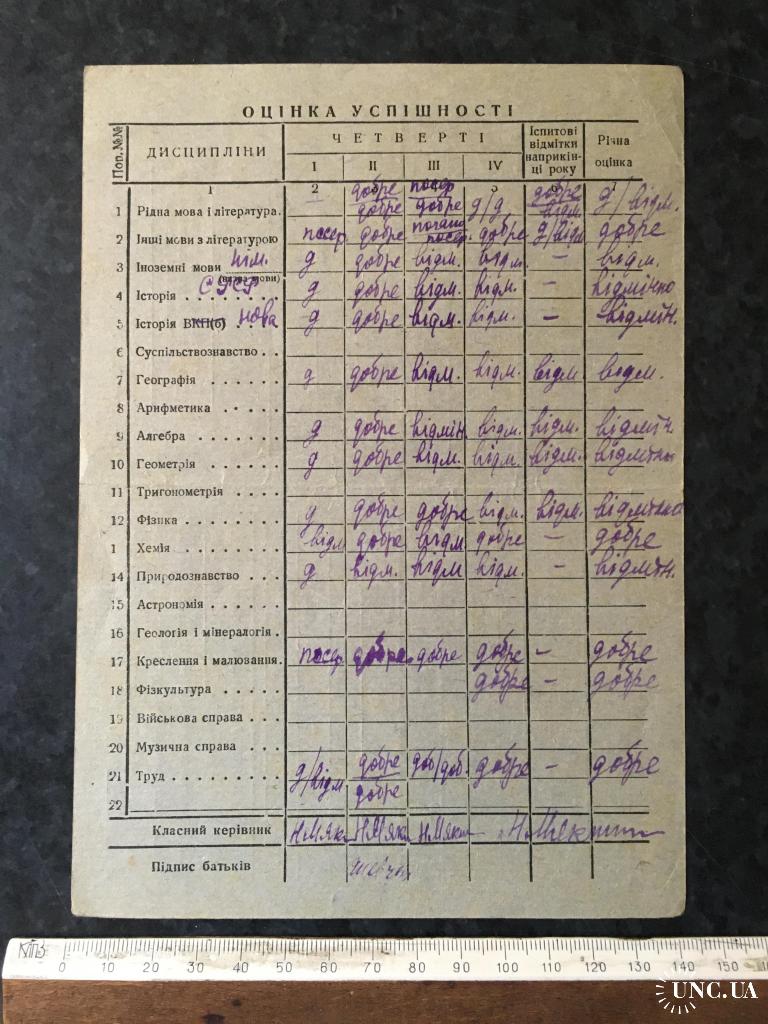 ОЦІНКА УСПІШНОСТІ
Поп. №№ ДИСЦИПЛІНИ ЧЕТВЕРТІ Іспитові відмітки наприкін-ці року Річна оцінка
I II III IV
1 2 3 5 6
добре посер добре
1 Рідна мова і література. добре добре д/д. відм. д/відм.
2 Інші мови з літературою посер. добре погано посер. добре д/відм добре
3 Іноземні мови нім. д добре відм. відм. — відм.
(назва мови)
4 Історія СРСР д добре відм. відм. — відмінно
5 Історія ВКП(б) нова д добре відм. відм. — відмін.
6 Суспільствознавство . .
7 Географія . . . . . . д добре відм. відм. відм відм.
8 Арифметика . . . . .
9 Алгебра . . . . . . . д добре відмін. відм. відм. відмін
10 Геометрія . . . . . д добре відм. відм. відм. відмінн
11 Тригонометрія . . . .
12 Фізика . . . . . . . . д добре добре відм. відм. відмінно
1 Хемія . . . . . . . . відм добре відм добре — добре
14 Природознавство . . . д відм. відм відм. — відмін.
15 Астрономія . . . . . .
16 Геологія і мінералогія .
17 Креслення і малювання. посер. добре добре добре — добре
18 Фізкультура . . . . добре — добре
19 Військова справа . . .
20 Музична справа . . . .
21 Труд . . . . . . . . д/відм. добре доб/доб. добре — добре
22 добре
Класний керівник
Підпис батьків
КПЗ 0 10 20 30 40 50 60 70 80 90 100 110 120 130 140 150
UNC.UA